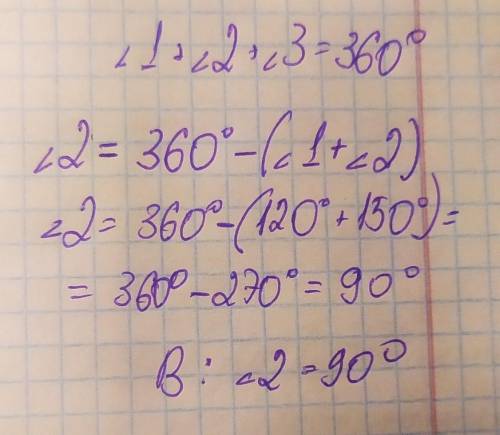 ∠1+∠2+∠3=360°
∠2=360°-(∠1+∠2)
∠2=360°-(120°+150°)=
=360°-270°=90°
В: ∠2=90°